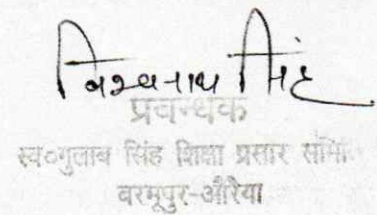 विश्वनाथ सिंह
प्रबन्धक
स्व०गुलाब सिंह शिक्षा प्रसार समिति
बरमूपुर-औरैया